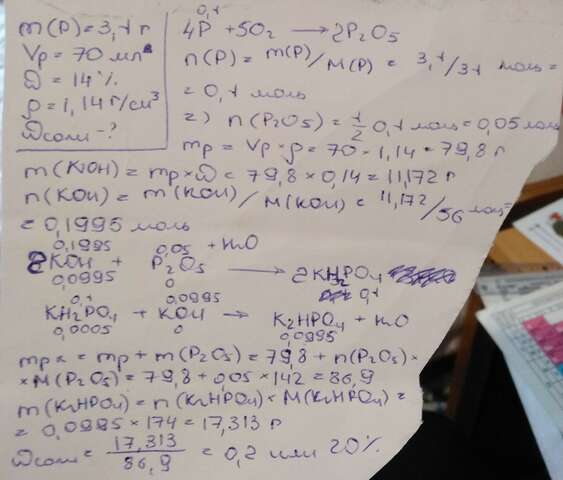 m(P)=3,1 г
Vp = 70 мл
ω = 14%
ρ = 1,14 г/см³
ω соли - ?
0,1
4P + 5O₂ → 2P₂O₅
n(P) = m(P)/M(P) = 3,1/31 моль =
= 0,1 моль
=) n(P₂O₅) = 1/2 0,1 моль = 0,05 моль
mp = Vp × ρ = 70 × 1,14 = 79,8 г
m(KOH) = mp × ω = 79,8 × 0,14 = 11,172 г
n(KOH) = m(KOH)/M(KOH) = 11,172/56 моль=
= 0,1995 моль
0,1995 0,05 + H₂O
2KOH + P₂O₅ → 2KH₂PO₄
0,0995 0 0,1
0,1 0,0995
KH₂PO₄ + KOH → K₂HPO₄ + H₂O
0,0005 0 0,0995
mpх = mp + m(P₂O₅) = 79,8 + n(P₂O₅) ×
× M(P₂O₅) = 79,8 + 0,05 × 142 = 86,9
m(K₂HPO₄) = n(K₂HPO₄) × M(K₂HPO₄) =
= 0,0995 × 174 = 17,313 г
ω соли = 17,313/86,9 = 0,2 или 20%